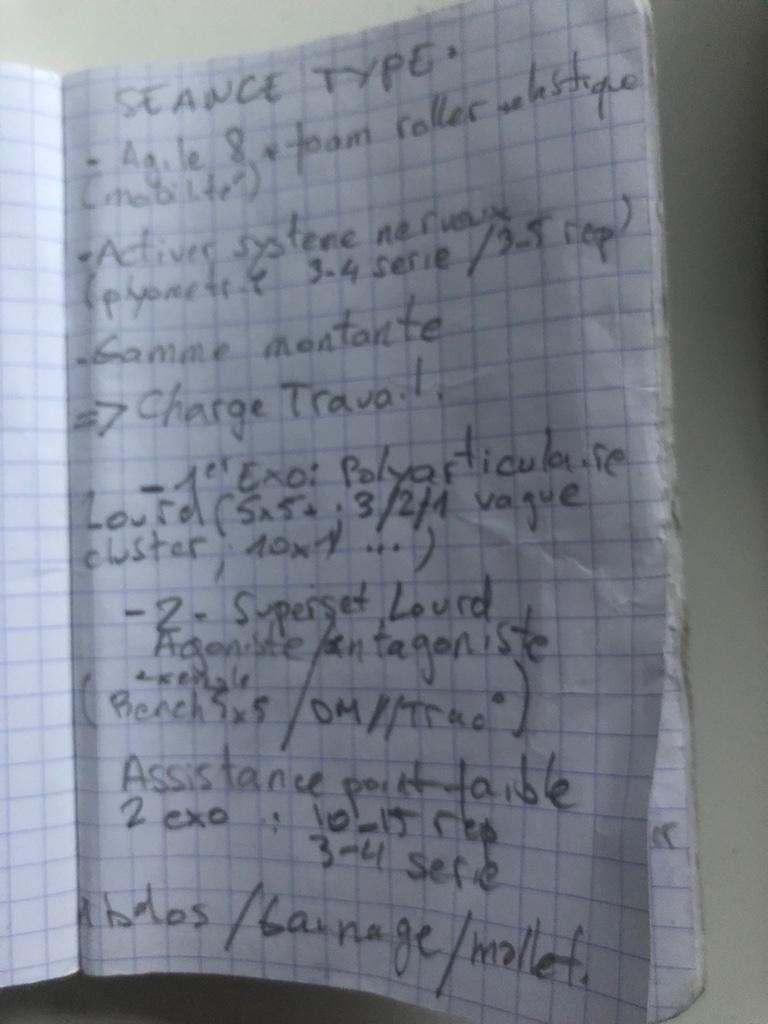 SEANCE TYPE.
- Agile 8 + foam roller + elastique
(mobilité)
- Activer système nerveux
(plyometrie 3-4 serie / 3-5 rep)
- Gamme montante
=> Charge Travail.
- 1er Exo: Polyarticulaire
Lourd (5x5+; 3/2/1 vague
cluster; 10x1 ...)
- 2 - Superset Lourd
Agoniste/antagoniste
exemple
(Bench 5x5 / DM // Trac°)
Assistance point faible
2 exo : 10-15 rep
3-4 serie
Abdos / Gainage / mollet.